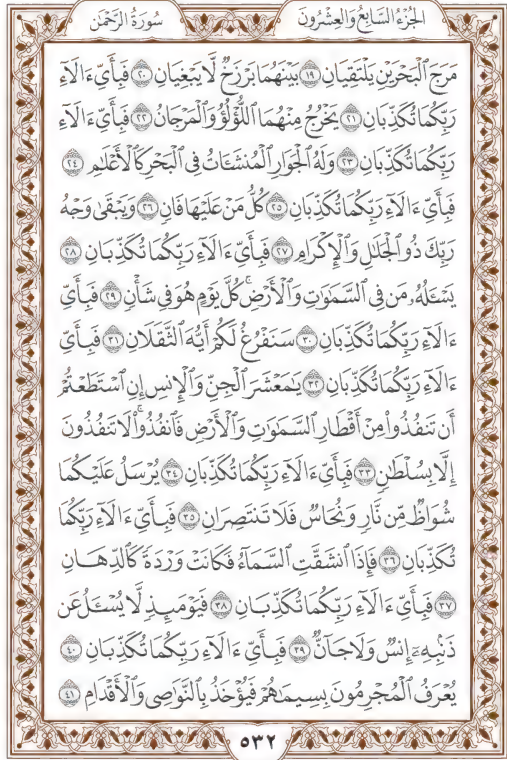 سُورَةُ الرَّحْمٰن
الجُزْءُ السَّابِعُ وَالعِشْرُونَ
مَرَجَ ٱلْبَحْرَيْنِ يَلْتَقِيَانِ ١٩ بَيْنَهُمَا بَرْزَخٌ لَّا يَبْغِيَانِ ٢٠ فَبِأَيِّ ءَالَآءِ
رَبِّكُمَا تُكَذِّبَانِ ٢١ يَخْرُجُ مِنْهُمَا ٱللُّؤْلُؤُ وَٱلْمَرْجَانُ ٢٢ فَبِأَيِّ ءَالَآءِ
رَبِّكُمَا تُكَذِّبَانِ ٢٣ وَلَهُ ٱلْجَوَارِ ٱلْمُنشَـَٔاتُ فِى ٱلْبَحْرِ كَٱلْأَعْلَـٰمِ ٢٤
فَبِأَيِّ ءَالَآءِ رَبِّكُمَا تُكَذِّبَانِ ٢٥ كُلُّ مَنْ عَلَيْهَا فَانٍ ٢٦ وَيَبْقَىٰ وَجْهُ
رَبِّكَ ذُو ٱلْجَلَـٰلِ وَٱلْإِكْرَامِ ٢٧ فَبِأَيِّ ءَالَآءِ رَبِّكُمَا تُكَذِّبَانِ ٢٨
يَسْـَٔلُهُۥ مَن فِى ٱلسَّمَـٰوَٰتِ وَٱلْأَرْضِ ۚ كُلَّ يَوْمٍ هُوَ فِى شَأْنٍ ٢٩ فَبِأَيِّ
ءَالَآءِ رَبِّكُمَا تُكَذِّبَانِ ٣٠ سَنَفْرُغُ لَكُمْ أَيُّهَ ٱلثَّقَلَانِ ٣١ فَبِأَيِّ
ءَالَآءِ رَبِّكُمَا تُكَذِّبَانِ ٣٢ يَـٰمَعْشَرَ ٱلْجِنِّ وَٱلْإِنسِ إِنِ ٱسْتَطَعْتُمْ
أَن تَنفُذُوا۟ مِنْ أَقْطَارِ ٱلسَّمَـٰوَٰتِ وَٱلْأَرْضِ فَٱنفُذُوا۟ ۚ لَا تَنفُذُونَ
إِلَّا بِسُلْطَـٰنٍ ٣٣ فَبِأَيِّ ءَالَآءِ رَبِّكُمَا تُكَذِّبَانِ ٣٤ يُرْسَلُ عَلَيْكُمَا
شُوَاظٌ مِّن نَّارٍ وَنُحَاسٌ فَلَا تَنتَصِرَانِ ٣٥ فَبِأَيِّ ءَالَآءِ رَبِّكُمَا
تُكَذِّبَانِ ٣٦ فَإِذَا ٱنشَقَّتِ ٱلسَّمَآءُ فَكَانَتْ وَرْدَةً كَٱلدِّهَانِ
٣٧ فَبِأَيِّ ءَالَآءِ رَبِّكُمَا تُكَذِّبَانِ ٣٨ فَيَوْمَئِذٍ لَّا يُسْـَٔلُ عَن
ذَنۢبِهِۦٓ إِنسٌ وَلَا جَآنٌّ ٣٩ فَبِأَيِّ ءَالَآءِ رَبِّكُمَا تُكَذِّبَانِ ٤٠
يُعْرَفُ ٱلْمُجْرِمُونَ بِسِيمَـٰهُمْ فَيُؤْخَذُ بِٱلنَّوَٰصِى وَٱلْأَقْدَامِ ٤١
٥٣٢